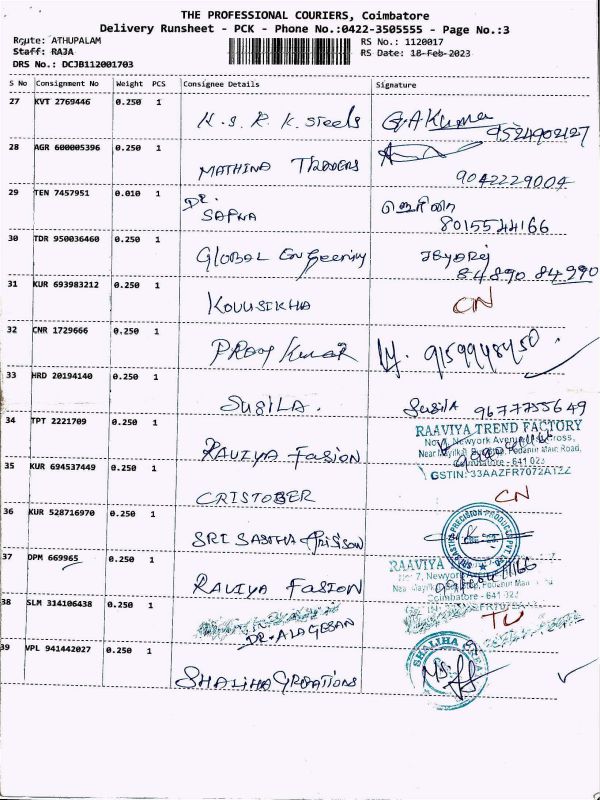 THE PROFESSIONAL COURIERS, Coimbatore
Delivery Runsheet - PCK - Phone No.:0422-3505555 - Page No.:3
Route: ATHUPALAM
RS No.: 1120017
Staff: RAJA
RS Date: 18-Feb-2023
DRS No.: DCJB112001703
S No Consignment No Weight PCS Consignee Details Signature
27 KVT 2769446 0.250 1 K.S.R.K. Steels G.A Kumar 9524902127
28 AGR 600005396 0.250 1 MATHINA TRADERS 9042229004
29 TEN 7457951 0.010 1 DR. SAPNA 8015544166
30 TDR 950036460 0.250 1 GLOBAL Engeering 84890 84990
31 KUR 693983212 0.250 1 KOUUSIKHA CN
32 CNR 1729666 0.250 1 PRAM KUMAR 9159948450
33 HRD 20194140 0.250 1 SUGILA. SugilA 9677755649
34 TPT 2221709 0.250 1 RAVIYA FASION
RAAVIYA TREND FACTORY
No.7, Newyork Avenue, Cross,
Podanur Main Road,
Coimbatore - 641 023
GSTIN: 33AAZFR7072A1ZZ
35 KUR 694537449 0.250 1 CRISTOBER CN
36 KUR 528716970 0.250 1 SRI SASTHA
37 DPM 669965 0.250 1 RAVIYA FASION
RAAVIYA
No 7, Newyork
Coimbatore - 641 023
38 SLM 314106438 0.250 1 DR. ALAGESAN TU
39 VPL 941442027 0.250 1 SHALIHA CREATIONS
SHALIHA